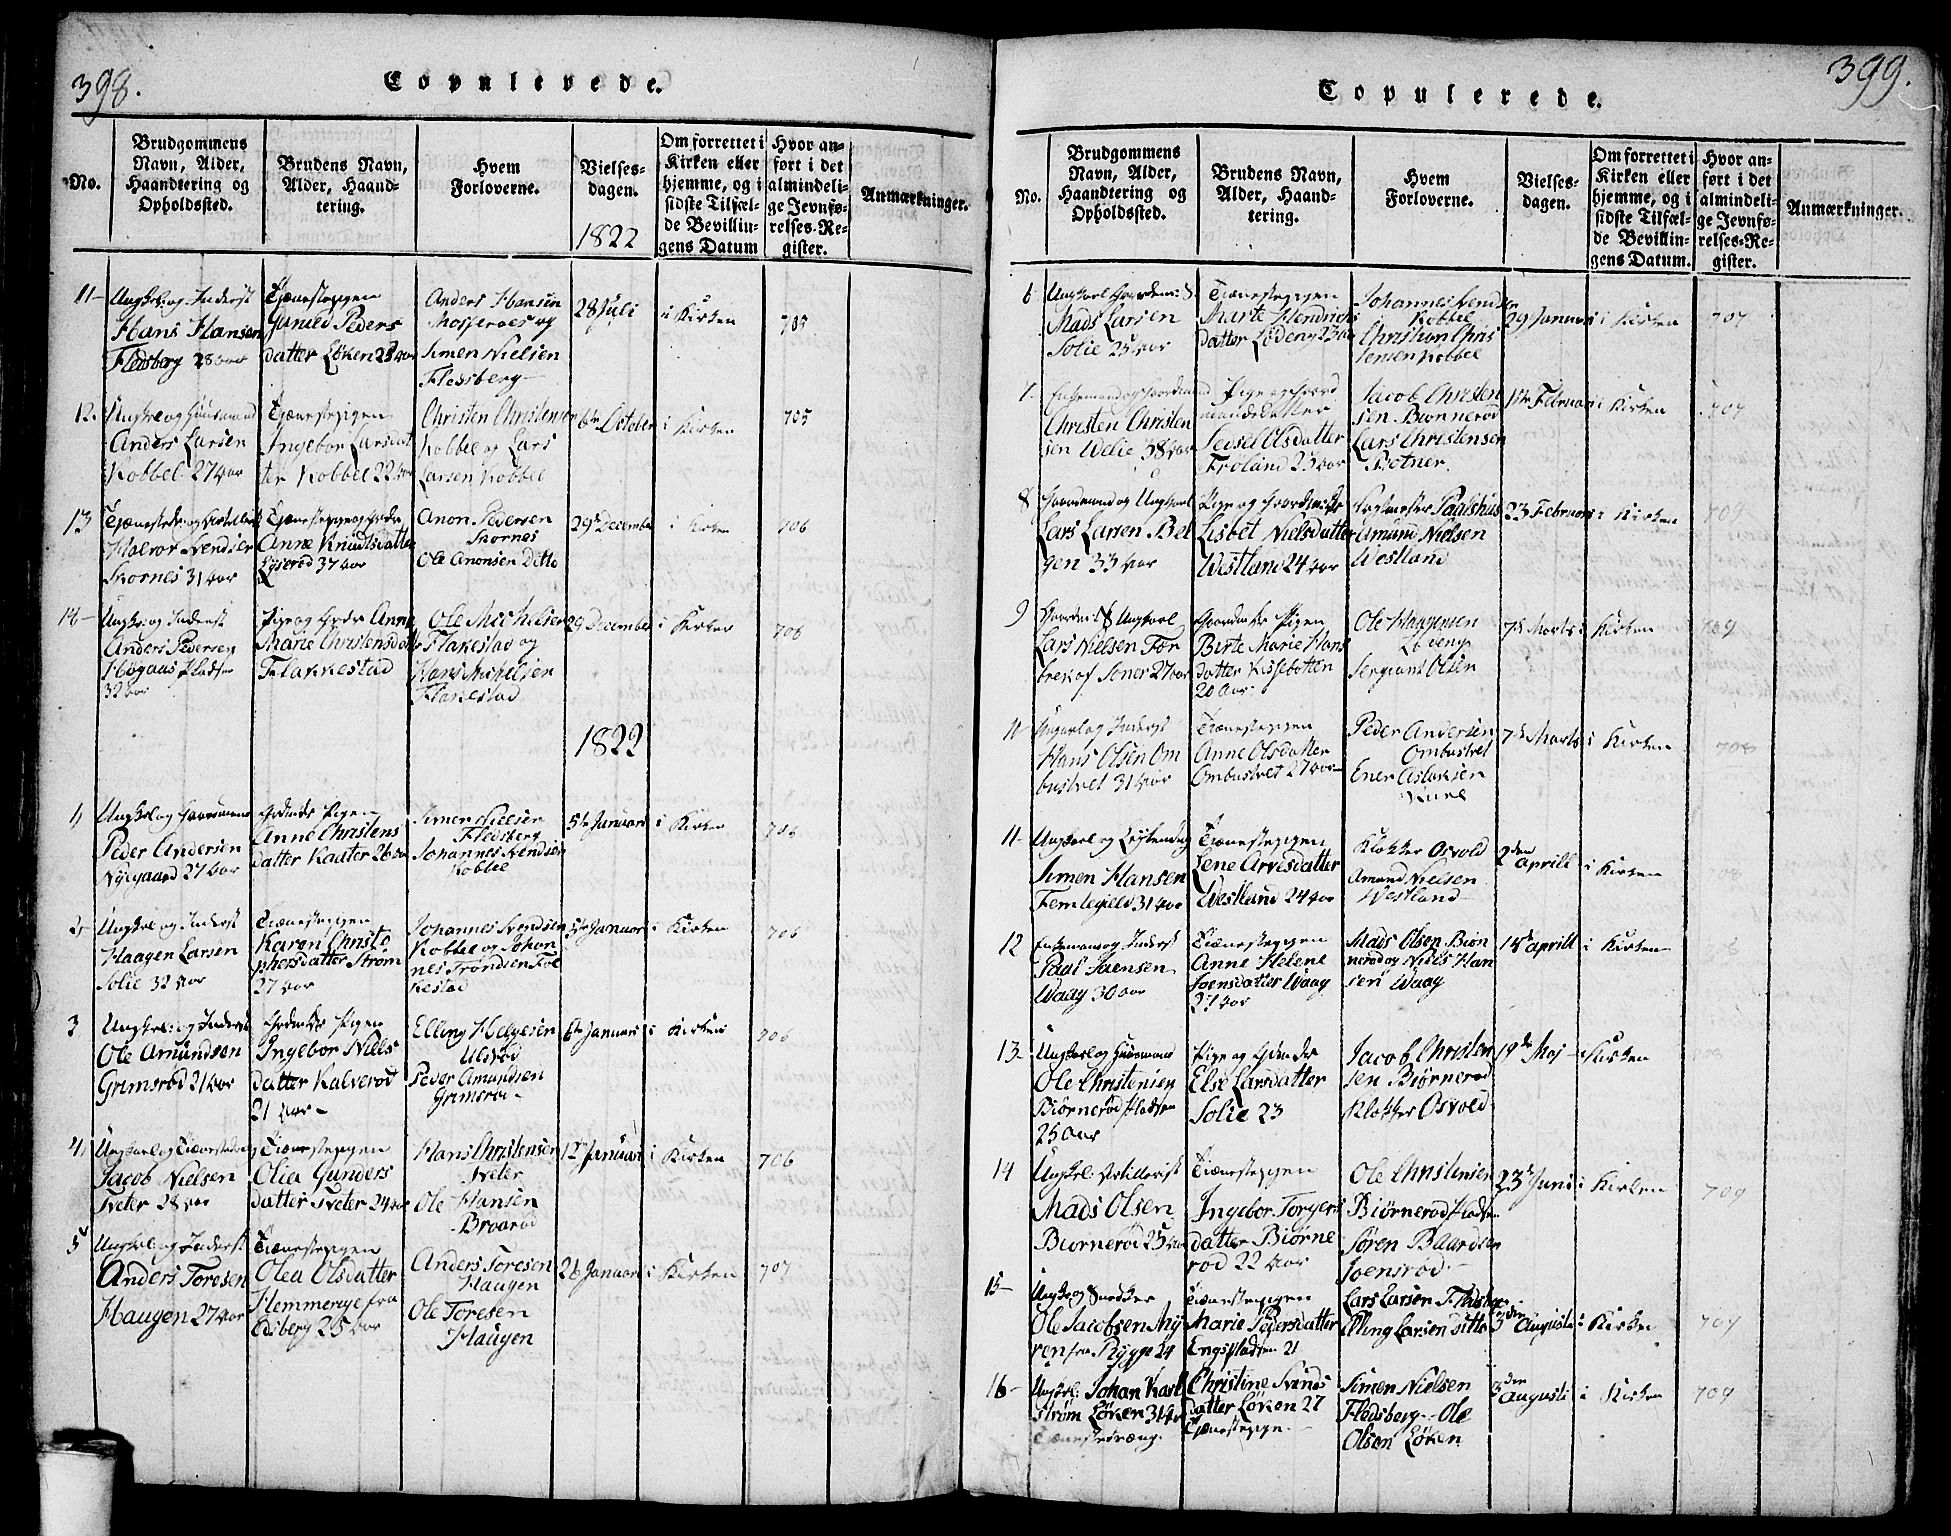 398.
Copulerede.
No.
Brudgommens
Navn, Alder,
Haandtering og
Opholdssted.
Brudens Navn,
Alder, Haand-
tering.
Hvem
Forloverne.
Vielses-
dagen.
1822
Om forrettet i
Kirken eller
hjemme, og i
sidste Tilfæl-
de Bevillin-
gens Datum
Hvor an-
ført i det
almindeli-
ge Jevnfø-
relses-Re-
gister.
Anmærkninger.
11-
Ungkl. og Inderst
Hans Hansen
Fledsberg 28 aar
Tjenestepigen
Gunild Peders
datter Løken
Anders Hansen
og
Simen Nielsen
Fledsberg
28 Juli
i Kirken
705
12.
Ungkl og Huusmand
Anders Larsen
Kobbel 27 aar
Tjenestepigen
Ingebor Larsdat
ter Kobbel 22 aar
Christen Christensen
Kobbel og Lars
Larsen Kobbel
6te October
i Kirken
705
13
Halvor Svendsen
Skornes 31 aar
Anne Knudtsdatter
37 aar
Anon Pedersen
Skornes
Ole Anonsen Ditto
29de December
i Kirken
706
14-
Ungkl og Inderst
Anders Pedersen
Pladsen
32 aar
Pige og Anne
Marie Christensdatter
Flakkestad
Ole Michelsen
Flakestad og
Hans Mikelsen
Flakestad
29 December
i Kirken
706
1822
1
Ungkl og Gaardmand
Peder Andersen
Nyegaard 27 aar
Pigen
Anne Christens
datter Kaater 26 aar
Simen Nielsen
Fledsberg
Johannes Svendsen
Kobbel
5te Januari
i Kirken
706
2
Ungkl og Inderst
Haagen Larsen
Solie 32 aar
Tienestepigen
Karen Christo
phersdatter Strøm
27 aar
Johannes Svendsen
Kobbel og Johan
nes Trondsen Fla
kestad
5te Januar
i Kirken
706
3
Ungkl: og Inderst
Ole Amundsen
Grimsrød 21 aar
Pigen
Ingebor Niels
datter Kalverød
21 aar-
Elling Helgesen
Ulsrød
Peder Amundsen
Grimsrød-
6te Januari
i Kirken
706
4
Ungkarl og
Jacob Nielsen
Tveter 28 aar
Tienestepigen
Olia Gunders
datter Tveter 24 aar
Hans Christensen
Tveter
Ole Hansen
Braarød
12te Januari
i Kirken
706
5
Ungkl og Inderst
Anders Toresen
Haugen 27 aar
Tienestepigen
Olea Olsdatter
fra
Edsberg 25 aar
Anders Toresen
Haugen
Ole Toresen
Haugen
26 Januari
i Kirken
707
399.
Copulerede.
No.
Brudgommens
Navn, Alder,
Haandtering og
Opholdssted.
Brudens Navn,
Alder, Haand-
tering.
Hvem
Forloverne.
Vielses-
dagen.
Om forrettet i
Kirken eller
hjemme, og i
sidste Tilfæl-
de Bevillin-
gens Datum.
Hvor an-
ført i det
almindeli-
ge Jevnfø-
relses-Re-
gister.
Anmærkninger.
6
Ungkarl
Mads Larsen
Solie 25 aar
Tienestepigen
Marte Hendrics
datter 23 aar
Johannes Svendsen
Kobbel
Christian Chris
tensen Kobbel
29 Januari
i Kirken
707
7.
Enkemand og Gaardmand
Christen Christen
sen Welie 38 aar
Pige og Gaard
mands Datter
Sedsel Olsdatter
Froland 23 aar
Jacob Christen
sen Biønnerød
Lars Christensen
Botner.
Februari
i Kirken
707
8
Gaardmand og Ungkarl
Lars Larsen Bel
gen 33 aar
Pige og
Lisbet Nielsdatter
Westland 24 aar
Paulshus
Amund Nielsen
Westland
23 Februari
i Kirken
707
9
Ungkarl
Lars Nielsen
af Soner 27 aar
Pigen
Birte Marie Hans
datter Kissebotten
20 Aar-
Ole Mogensen
Sergiant Olsen
7de Marts
i Kirken
10
Ungkarl og Inderst
Hans Olsen Om
bustvet 31 aar
Tienestepigen
Anne Olsdatter
Ombustvet 27 aar-
Peder Andersen
Ombustvet
Ener Aslaksen
7de Marts
i Kirken
708
11.
Ungkarl og
Simen Hansen
31 aar
Tienestepigen
Lene Arvesdatter
Westland 24 aar
Klokker Osvold
Amund Nielsen
Westland
2den aprill
i Kirken
708
12
Enkemand og Inderst
Paul Joensen
Waag 30 aar
Tienestepigen
Anne Helene
Joensdatter Waag
27 aar
Mads Olsen Biøn
nerød og Niels Han
sen Waag
14de aprill
i Kirken
13-
Ungkarl og Huusmand
Ole Christensen
Biørnerød Pladsen
25 Aar
Pige og
Else Larsdatter
Solie 23
Jacob Christen
sen Biørnerød
Klokker Osvold
19de Maj
i Kirken
14
Ungkl. Artillerist
Mads Olsen
Biørnerød 25 aar
Tienestepigen
Ingebor Torgers
datter Biørne
rød 22 aar
Ole Christensen
Biørnerød Pladsen
Søren Baardsen
Joensrød-
23de Juni
i Kirken
709
15-
Ungkl og Snedker
Ole Jacobsen My
ren fra Rygge 24
Tienestepigen
Marie Pedersdatter
Engspladsen 21
Lars Larsen Fledsberg
Elling Larsen ditto
3den Augusti
i Kirken
709
16-
Ungkl. Johan Karl
strøm Løken 31 aar
Tjenestedreng.
Christine Svends
datter Løken 27
Tjenestepige.-
Simen Nielsen
Fledsberg-Ole
Olsen Løken
3den Augusti
i Kirken
709